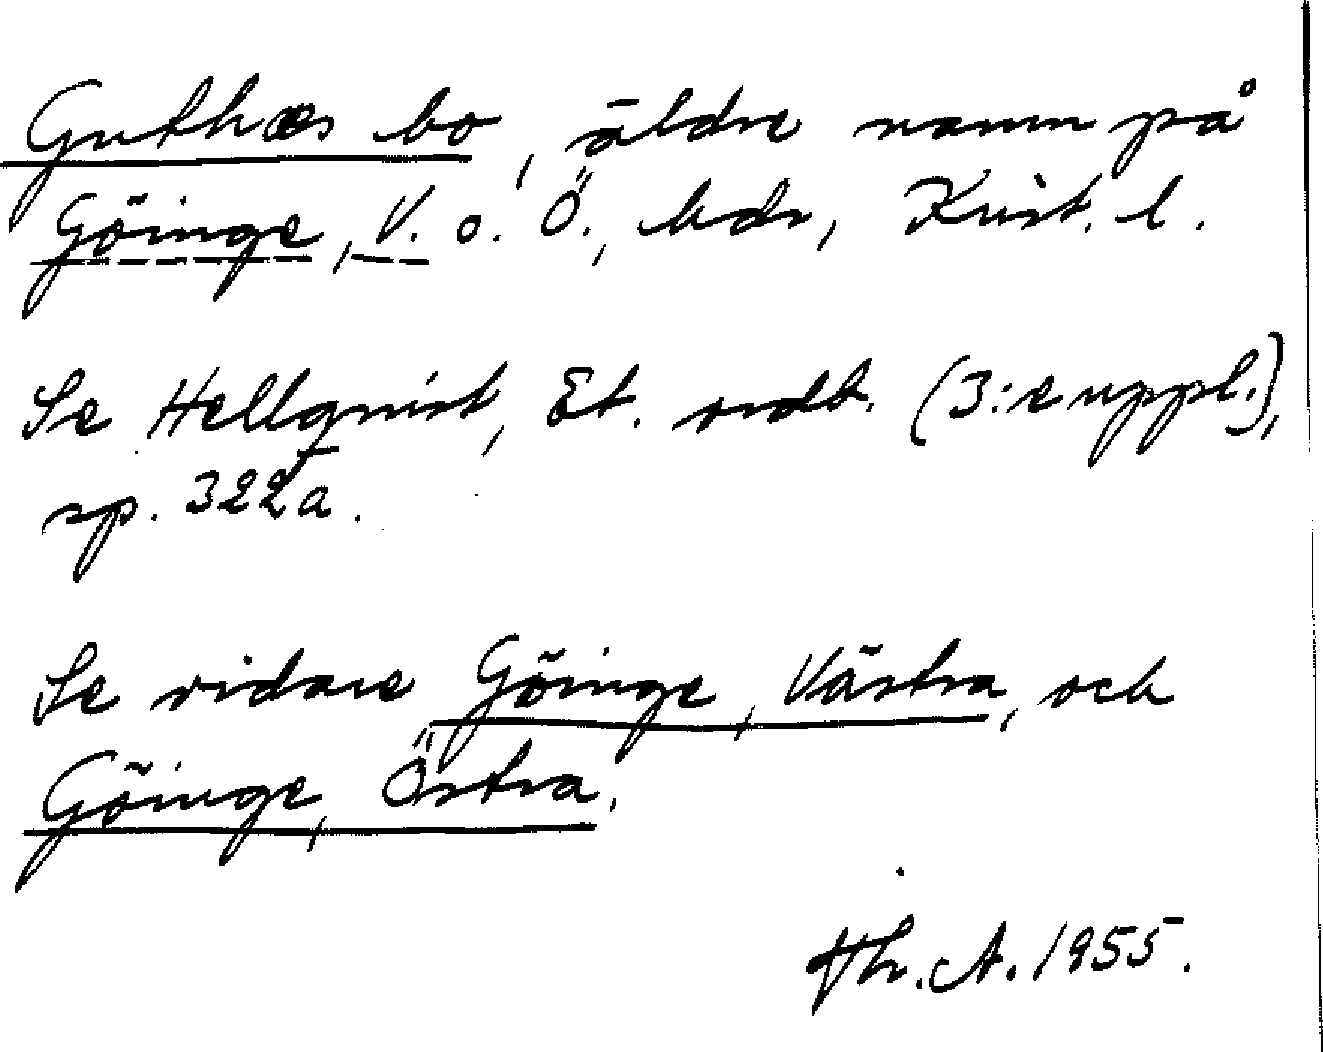 Guthæs bo, äldre namn på
Göinge, V. o. Ö., hdr, Krist. l.
Se Hellquist, Et. ordb. (3:e uppl.),
sp. 322a.
Se vidare Göinge, Västra, och
Göinge, Östra.
Th. A. 1955.